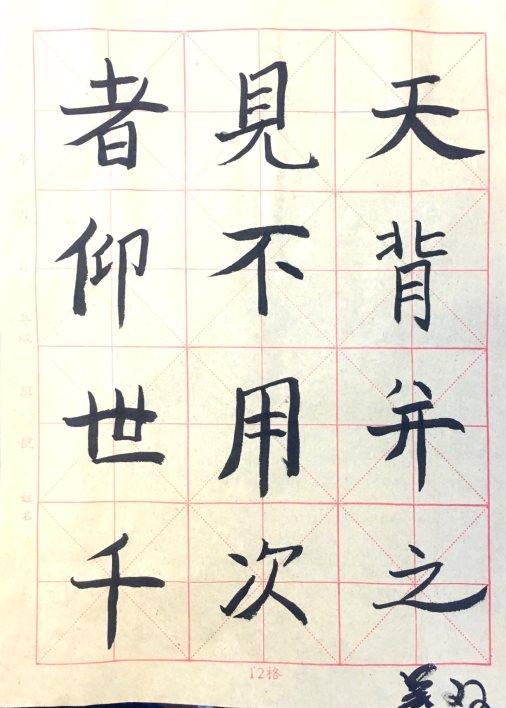 天背并之
見不用次
者仰世千
12格
姓名